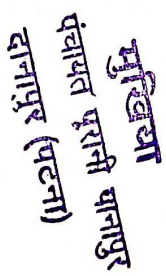 मुखिया
पंचायत पुरानी पानापुर
दानापुर (पटना)